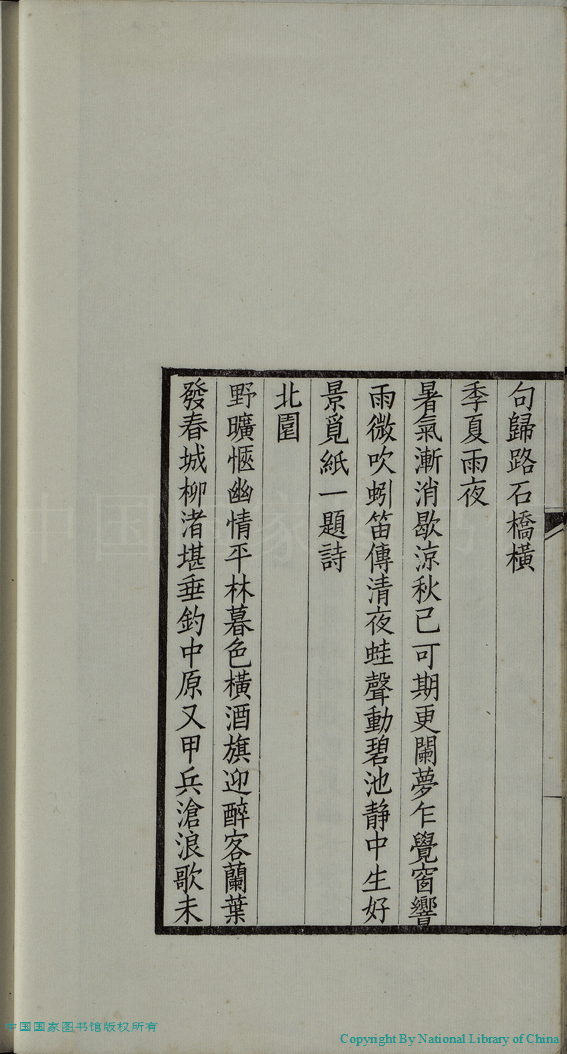 句歸路石橋橫
季夏雨夜
暑氣漸消歇涼秋已可期更闌夢乍覺窗響
雨微吹蚓笛傳清夜蛙聲動碧池静中生好
景覓紙一題詩
北園
野曠愜幽情平林暮色橫酒旗迎醉客蘭葉
發春城柳渚堪垂釣中原又甲兵滄浪歌未
中国国家图书馆版权所有
Copyright By National Library of China